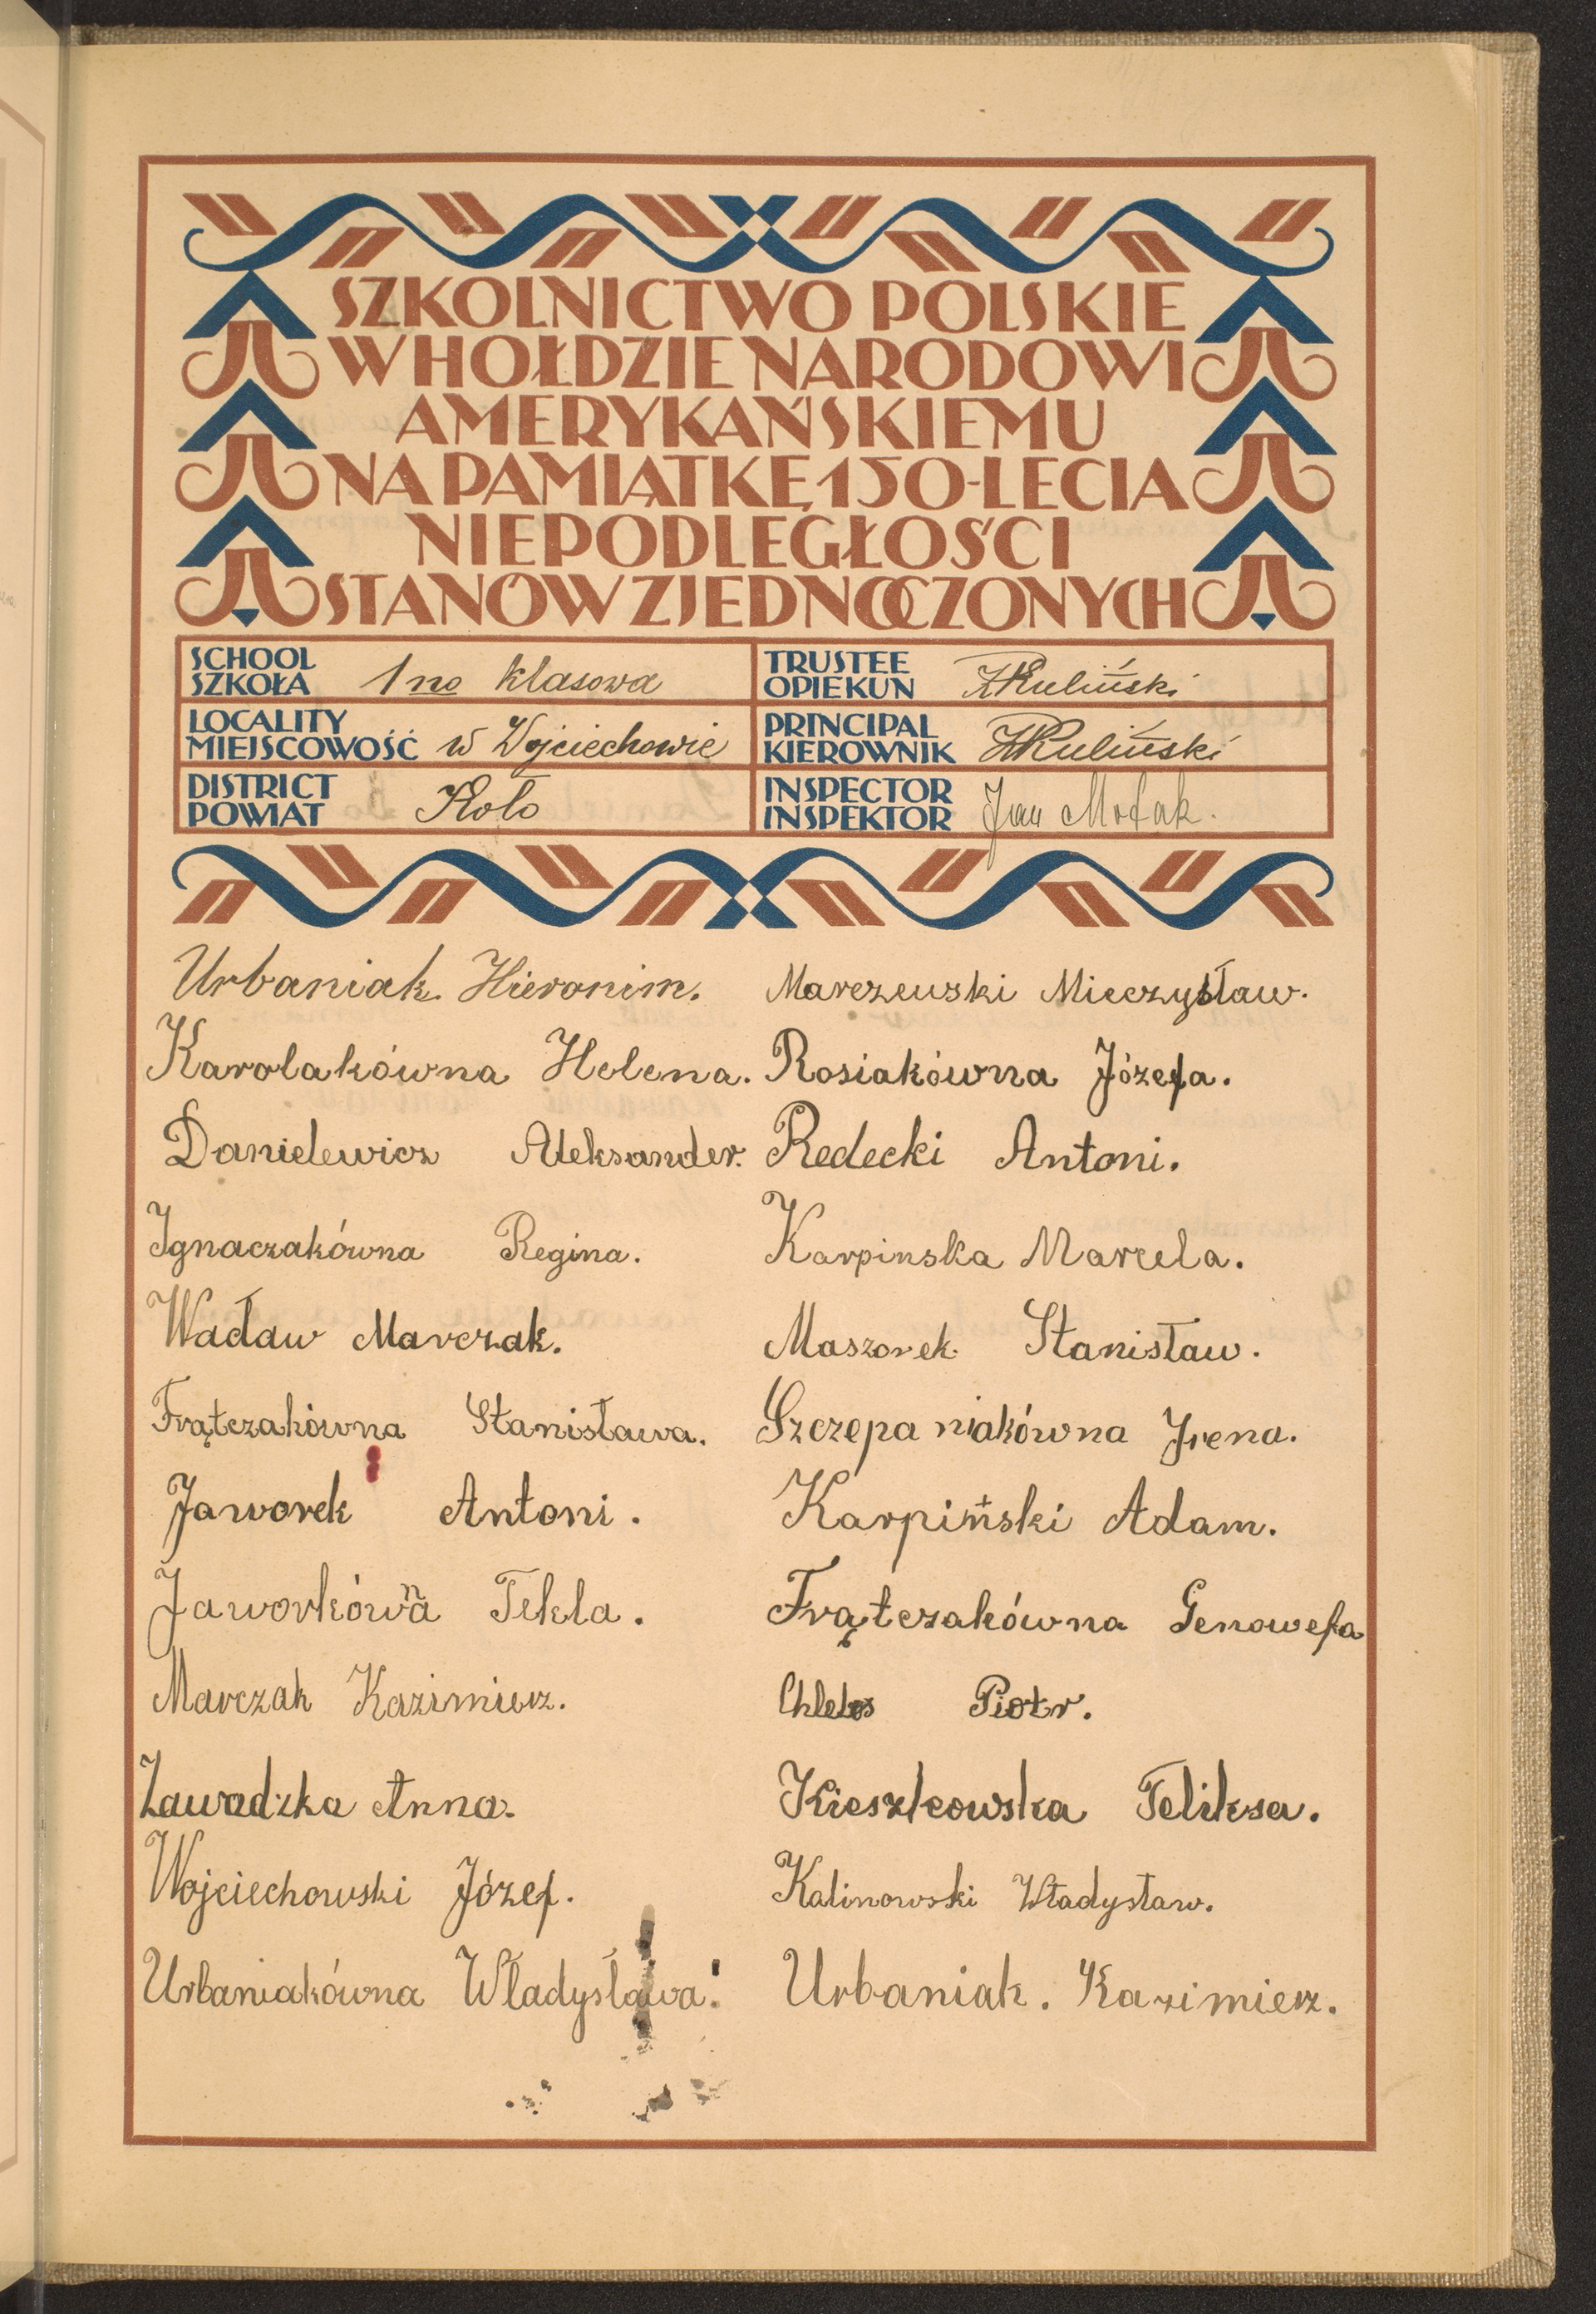 SZKOLNICTWO POLSKIE
W HOŁDZIE NARODOWI
AMERYKAŃSKIEMU
NA PAMIĄTKĘ 150-LECIA
NIEPODLEGŁOŚCI
STANÓW ZJEDNOCZONYCH
SCHOOL
SZKOŁA 1no klasowa
TRUSTEE
OPIEKUN ZKuliński
LOCALITY
MIEJSCOWOŚĆ w Wojciechowie
PRINCIPAL
KIEROWNIK ZKuliński
DISTRICT
POWIAT Koło
INSPECTOR
INSPEKTOR Jan
Urbaniak. Hieronim.
Karolakówna Helena.
Danielewicz Aleksander.
Ignaczakówna Regina.
Wacław Marczak.
Frątczakówna Stanisława.
Jaworek Antoni.
Jaworkówna Tekla.
Marczak Kazimierz.
Zawadzka Anna.
Wojciechowski Józef.
Urbaniakówna Władysława.
Marczewski Mieczysław.
Rosiakówna Józefa.
Redecki Antoni.
Karpinska Marcela.
Maszorek Stanisław.
Szczepaniakówna Irena.
Karpiński Adam.
Frątczakówna Genowefa
Piotr.
Kieszkowska Feliksa.
Kalinowski Władysław.
Urbaniak. Kazimierz.